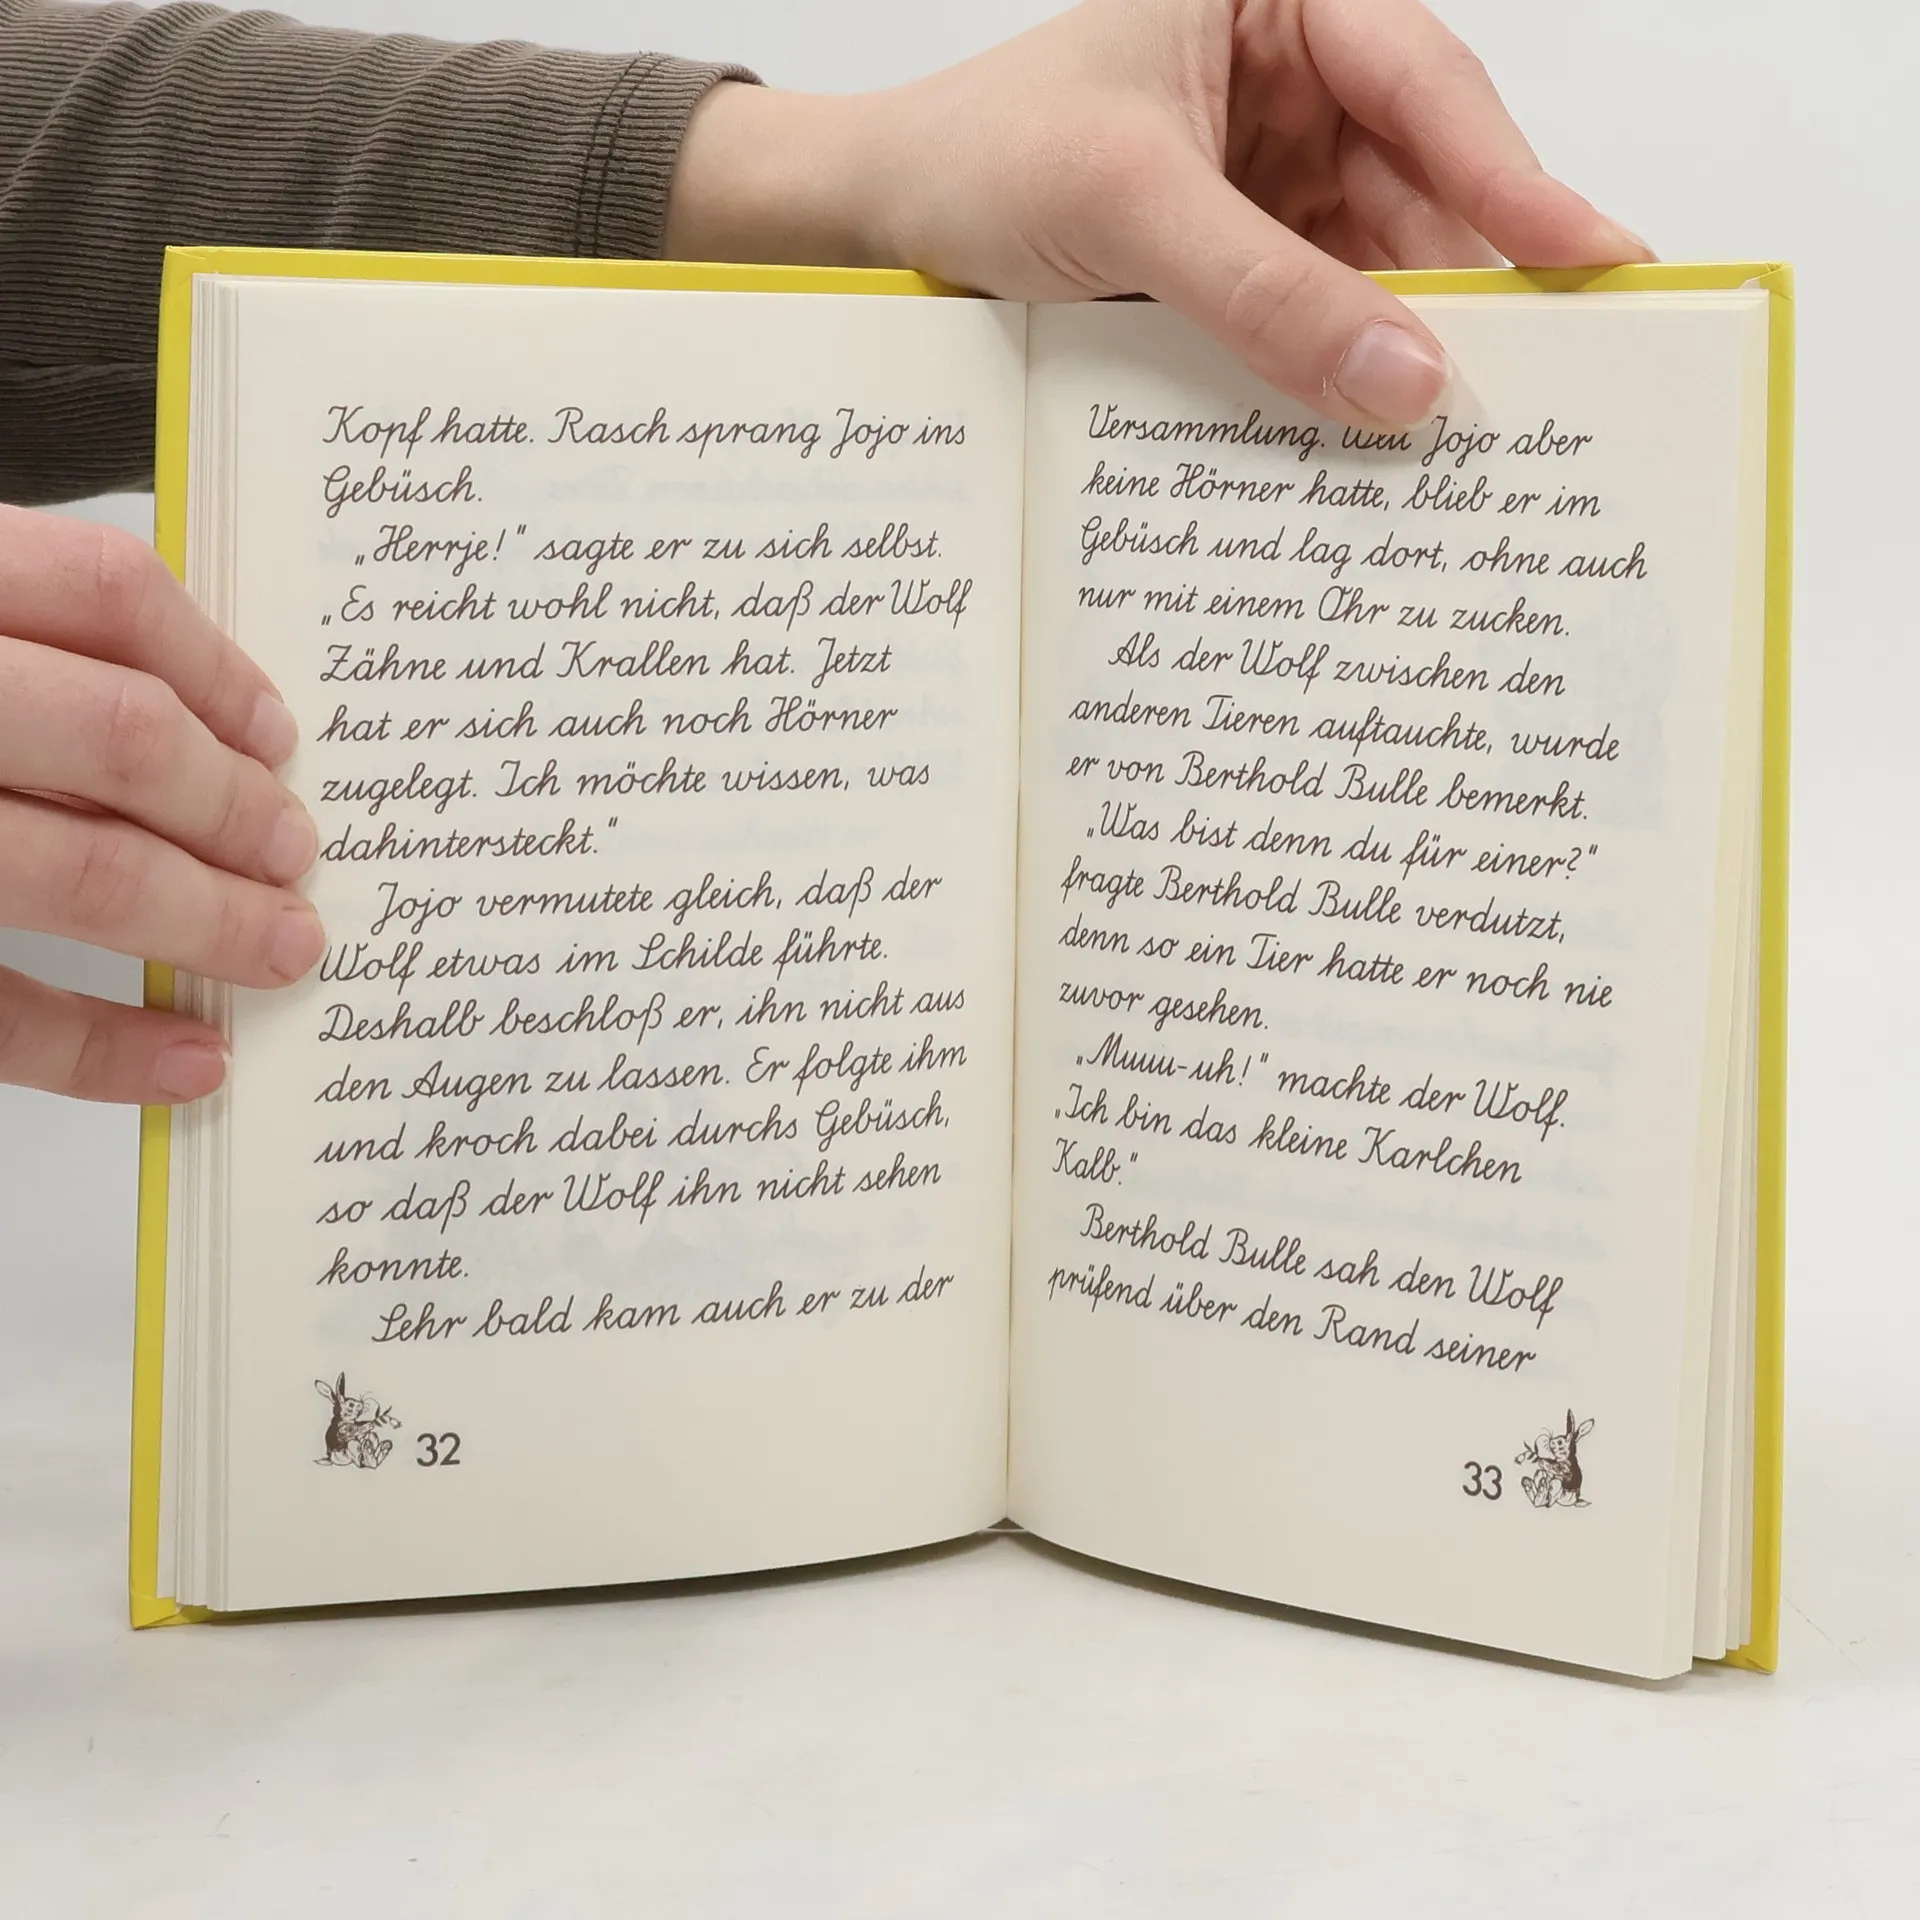 Kopf hatte. Rasch sprang Jojo ins
Gebüsch.
„Herrje!" sagte er zu sich selbst.
„Es reicht wohl nicht, daß der Wolf
Zähne und Krallen hat. Jetzt
hat er sich auch noch Hörner
zugelegt. Ich möchte wissen, was
dahintersteckt."
Jojo vermutete gleich, daß der
Wolf etwas im Schilde führte.
Deshalb beschloß er, ihn nicht aus
den Augen zu lassen. Er folgte ihm
und kroch dabei durchs Gebüsch,
so daß der Wolf ihn nicht sehen
konnte.
Sehr bald kam auch er zu der
32
Versammlung. Weil Jojo aber
keine Hörner hatte, blieb er im
Gebüsch und lag dort, ohne auch
nur mit einem Ohr zu zucken.
Als der Wolf zwischen den
anderen Tieren auftauchte, wurde
er von Berthold Bulle bemerkt.
„Was bist denn du für einer?"
fragte Berthold Bulle verdutzt,
denn so ein Tier hatte er noch nie
zuvor gesehen.
„Muuu-uh!" machte der Wolf.
„Ich bin das kleine Karlchen
Kalb."
Berthold Bulle sah den Wolf
prüfend über den Rand seiner
33